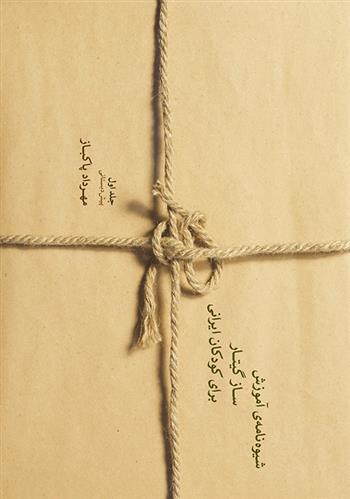 شیوه‌نامه‌ی آموزش
ســاز گیتــار
برای کودکان ایرانی
جلد اول
پیش‌دبستانی
مهـرداد پاکبـاز